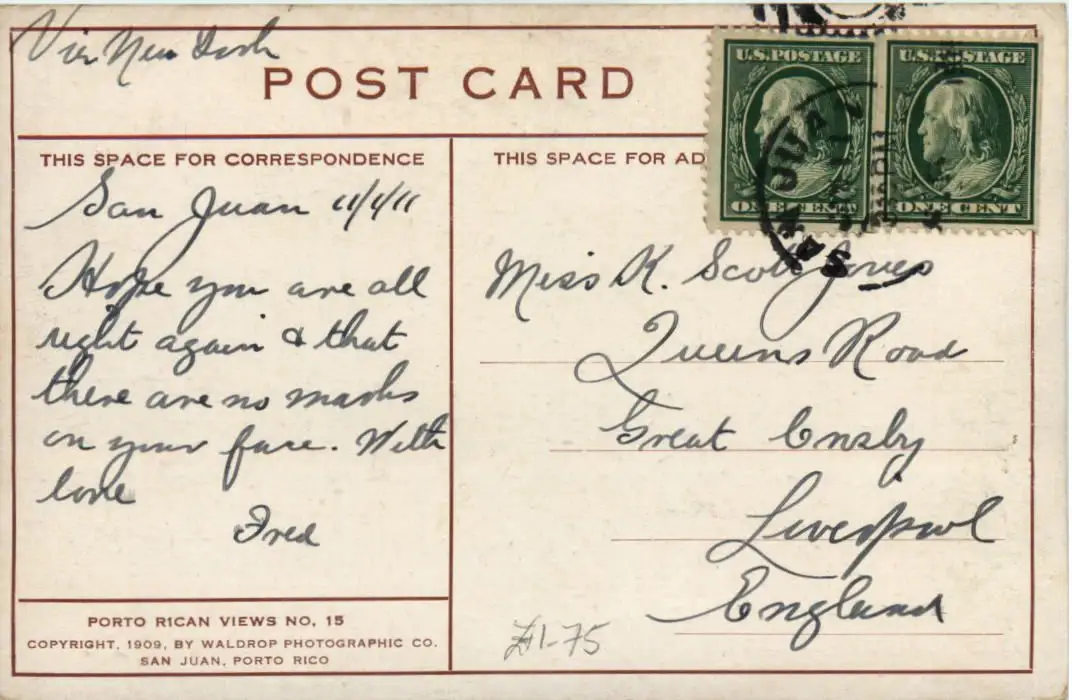 Via New York
POST CARD
U.S. POSTAGE
U.S. POSTAGE
ONE CENT
ONE CENT
SAN JUAN
THIS SPACE FOR CORRESPONDENCE
San Juan 11/4/11
Hope you are all
right again & that
there are no marks
on your face. With
love
Fred
THIS SPACE FOR AD
Miss K. Scott
Queens Road
Great Crosby
Liverpool
England
PORTO RICAN VIEWS NO. 15
COPYRIGHT, 1909, BY WALDROP PHOTOGRAPHIC CO.
SAN JUAN, PORTO RICO
£1-75